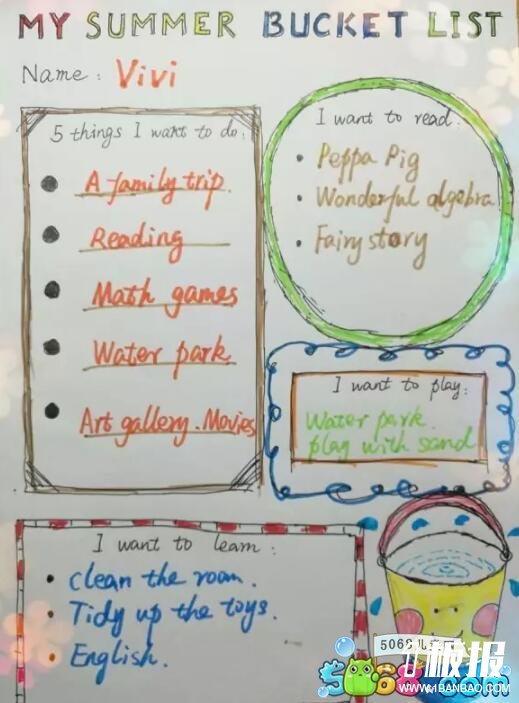 MY SUMMER BUCKET LIST
Name: Vivi
5 things I want to do:
A family trip.
Reading
Math games
Water park
Art gallery. Movies
I want to read:
Peppa Pig
Wonderful algebra
Fairy story
I want to play:
Water park.
play with sand
I want to learn:
clean the room.
Tidy up the toys.
English.
5068儿
1极报
WWW.1BANBAO.COM